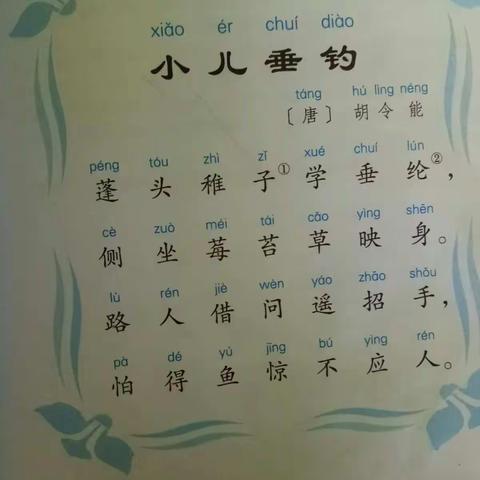 xiǎo ér chuí diào
小儿垂钓
táng hú lìng néng
〔唐〕胡令能
péng tóu zhì zǐ xué chuí lún
蓬头稚子①学垂纶②，
cè zuò méi tái cǎo yìng shēn
侧坐莓苔草映身。
lù rén jiè wèn yáo zhāo shǒu
路人借问遥招手，
pà dé yú jīng bú yìng rén
怕得鱼惊不应人。